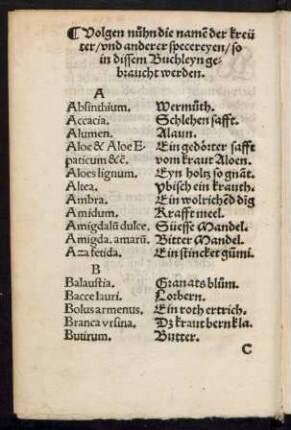 ¶ Volgen nůhn die namẽ der kreü
ter/vnd anderer specereyen/so
in dissem Buchleyn ge-
braucht werden.
A
Absinthium. Wermůth.
Accacia. Schlehen safft.
Alumen. Alaun.
Aloe & Aloe E- Ein gedötter safft
paticum &c̃. vom kraut Aloen.
Aloes lignum. Eyn holtz so gnãt.
Altea. Ybisch ein krauth.
Ambra. Ein wolrichẽd dig
Amidum. Krafft meel.
Amigdalũ dulce. Süesse Mandel.
Amigda. amarũ. Bitter Mandel.
Azafetida. Ein stincket gũmi.
B
Balaustia. Granats blům.
Bacce lauri. Lorbern.
Bolus armenus. Ein roth ertrich.
Branca vrsina. Dz kraut bernkla.
Butirum. Butter.
C